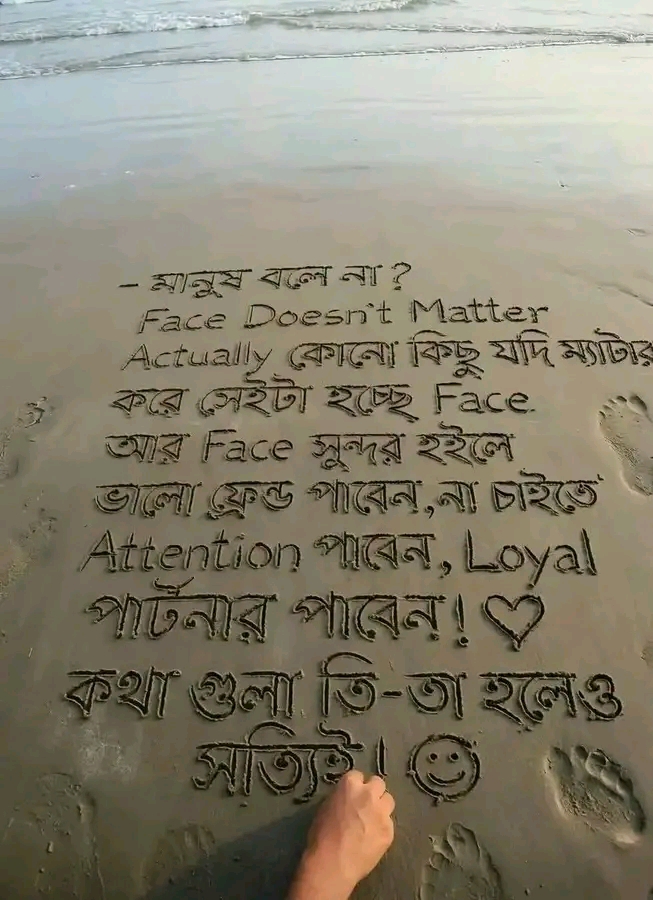 - মানুষ বলে না ?
Face Doesn't Matter
Actually কোনো কিছু যদি ম্যাটার
করে সেইটা হচ্ছে Face.
আর Face সুন্দর হইলে
ভালো ফ্রেন্ড পাবেন, না চাইতে
Attention পাবেন, Loyal
পার্টনার পাবেন! ♡
কথা গুলা তি-তা হলেও
সত্যিই! ☺